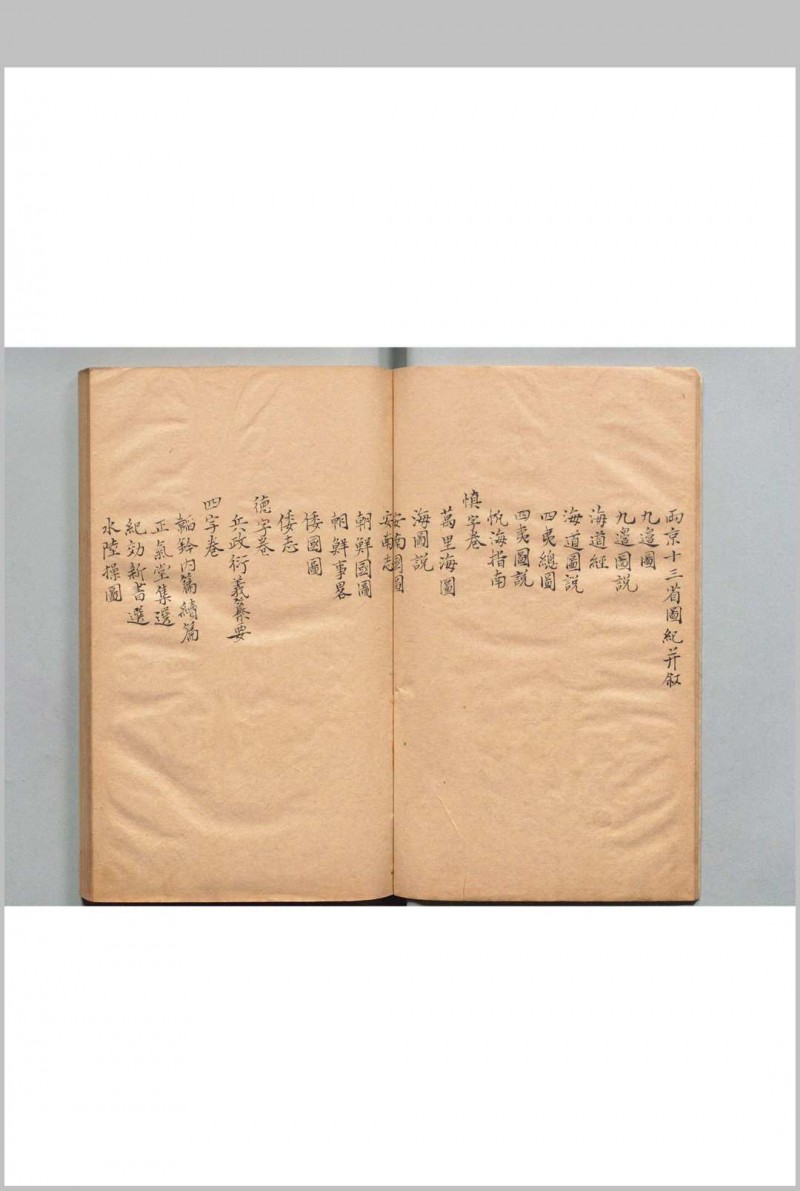 兩京十三省圖紀并叙
九邉圖
九邉圖説
海道經
海道圖説
四夷總圖
四夷圖説
帆海指南
慎字卷
萬里海圖
海圖説
安南國圖
安南志
朝鮮國圖
朝鮮事畧
倭國圖
倭志
德字卷
兵政衍義纂要
四字卷
韜鈐内篇續篇
正氣堂集選
紀効新書選
水陸操圖